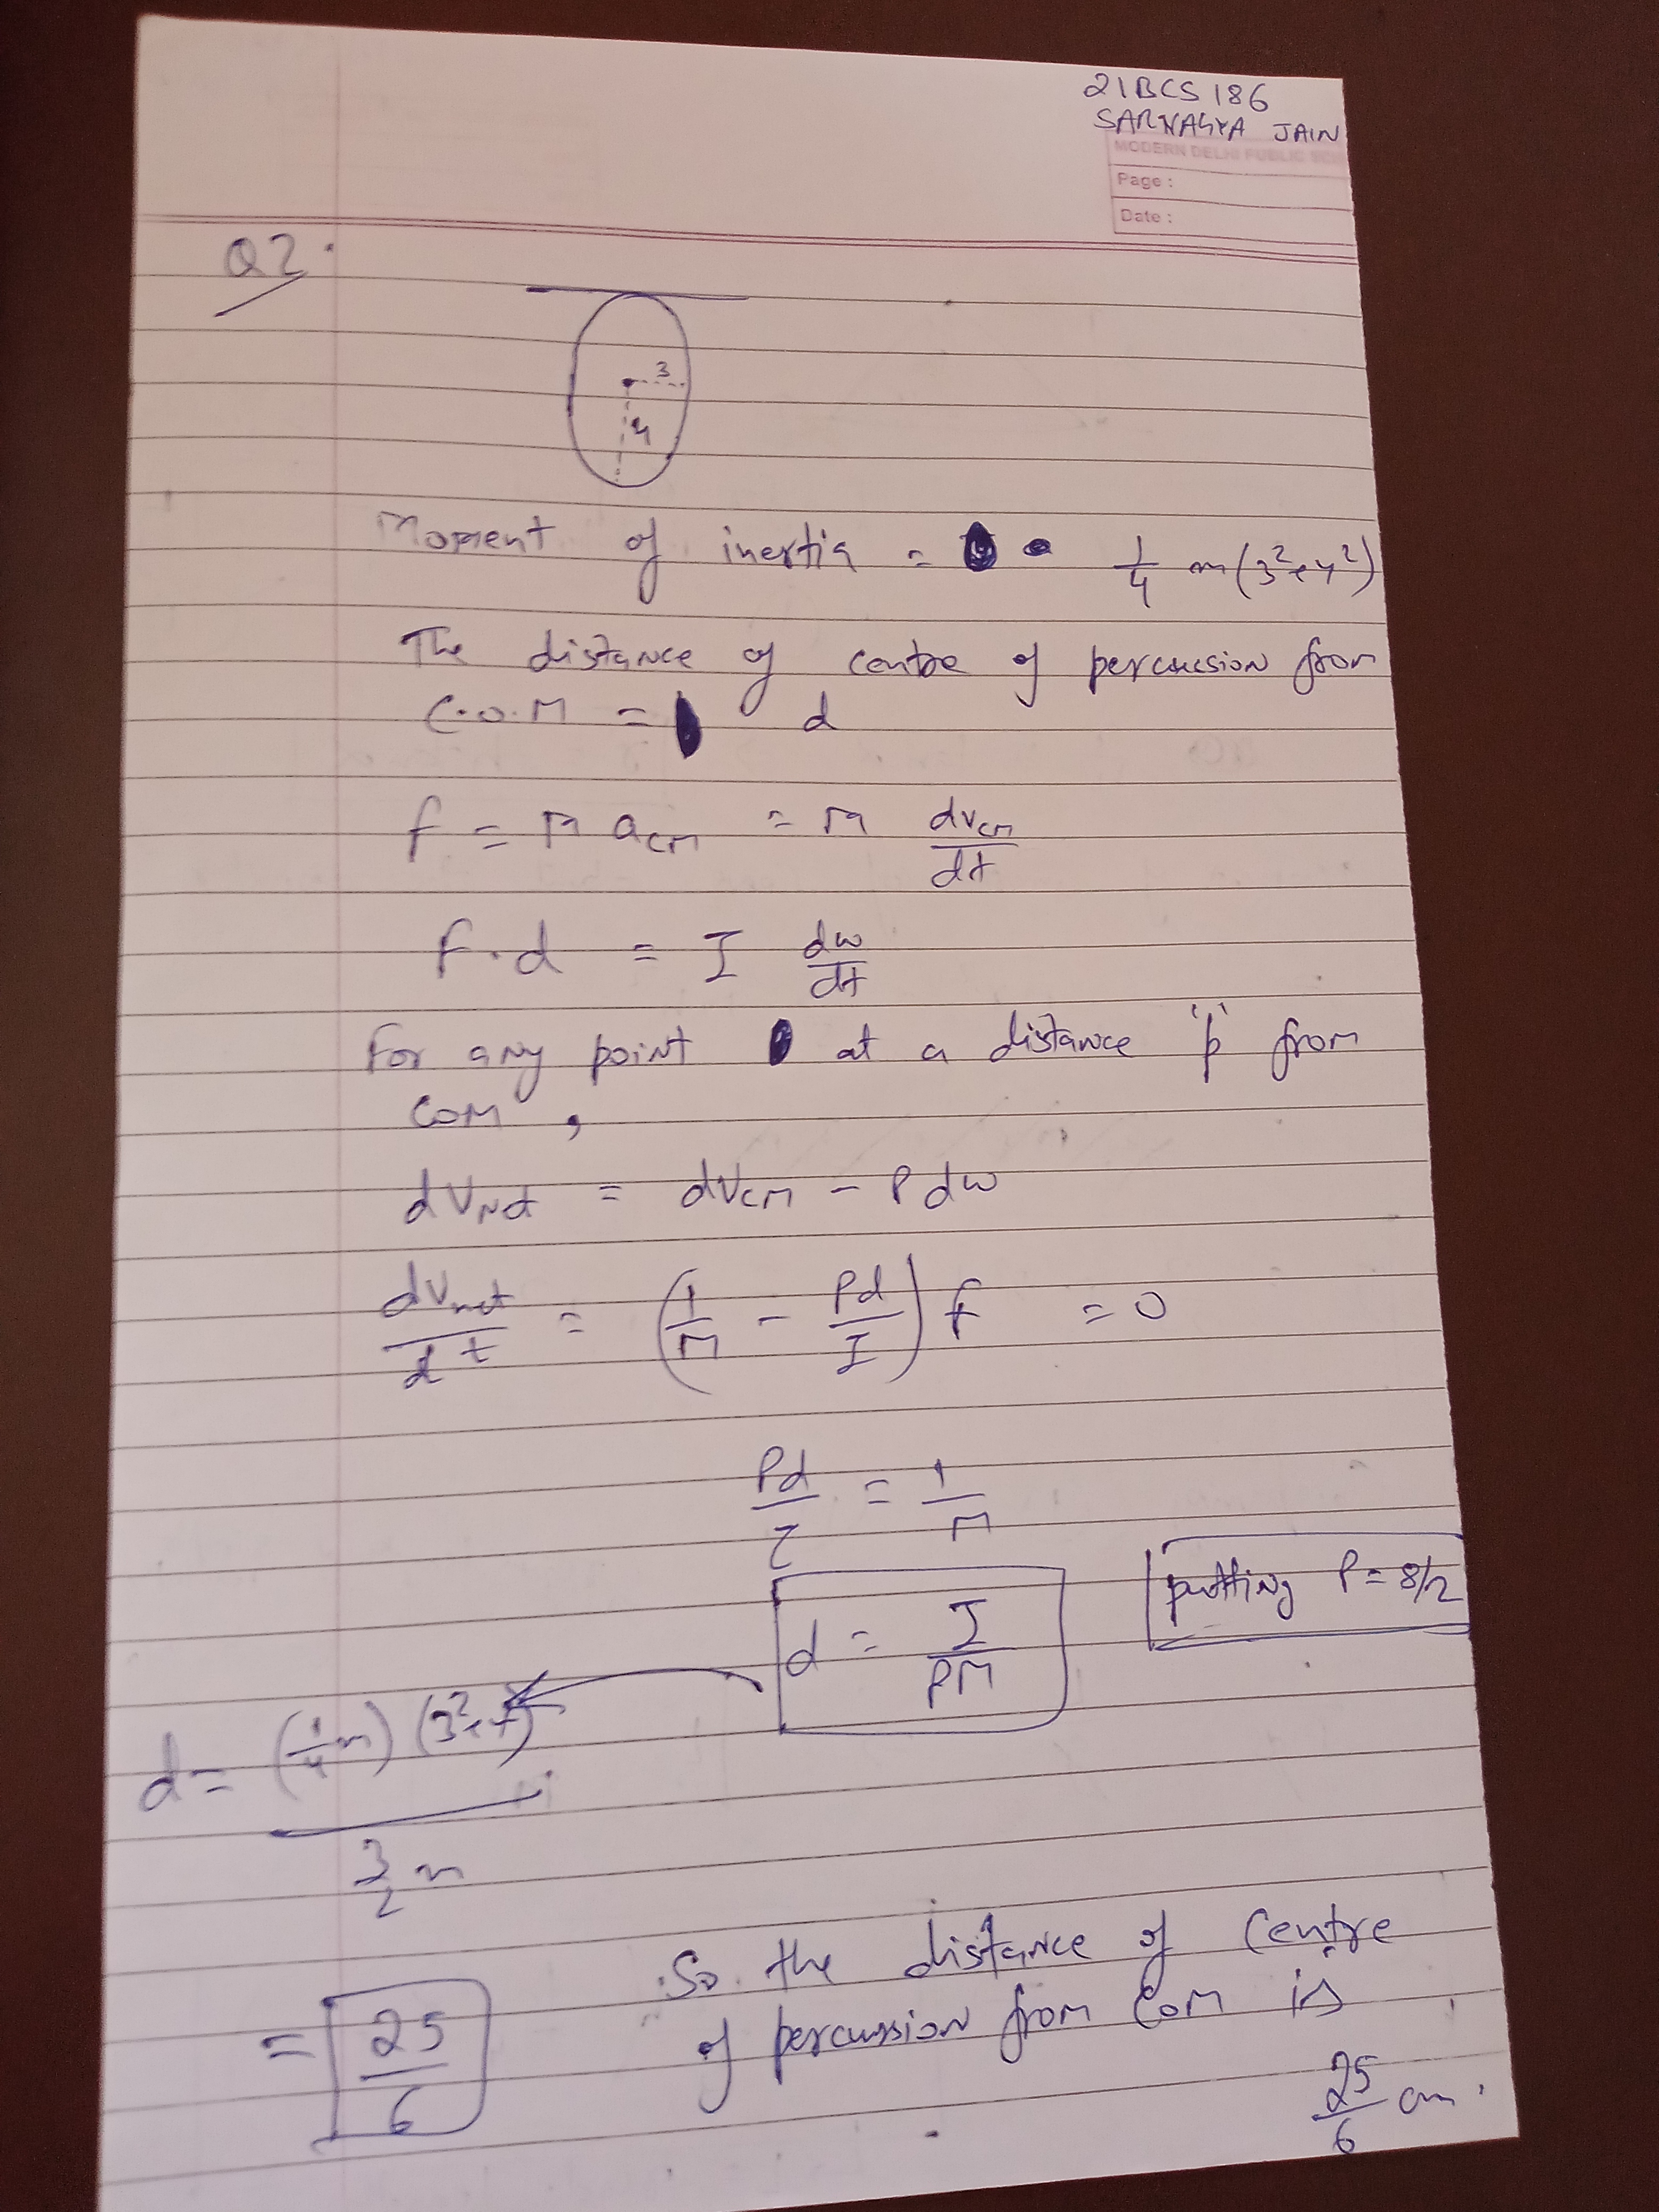 21BCS186
SARNAGYA JAIN
MODERN DELHI PUBLIC SCH
Page :
Date :
Q2.
3
4
Moment of inertia = 1/4 m(3²+4²)
The distance of centre of percussion from
C.O.M = d
f = M a_cm = M dv_cm/dt
F.d = I dω/dt
For any point at a distance 'p' from
COM ,
dV_net = dV_cm - P dω
dV_net/dt = (1/M - Pd/I) f = 0
Pd/I = 1/M
putting P = 8/2
d = I/PM
d = (1/4 m) (3²+4²)
3/2 m
= 25/6
So the distance of centre
of percussion from COM is
25/6 cm.